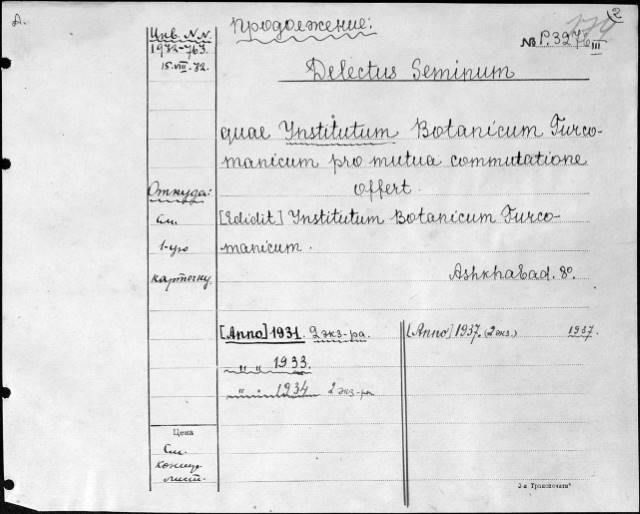 Д.
2
Инв. N.N.
1972-763.
15.VIII.72.
Продолжение:
№ Р.327б III
Delectus Seminum
quae Ynstitutum Botanicum Turco-
manicum pro mutua commutatione
offert.
Откуда:
см.
1-ую
карточку.
[Edidit] Ynstitutum Botanicum Turco-
manicum.
Ashkhabad. 8°.
[Anno] 1931. 2 экз-ра.
„ „ 1933.
„ „ 1934 2 экз-ра
[Anno] 1937. (2 экз.) 1937.
Цена
См.
лист.
3-я Транспечати"